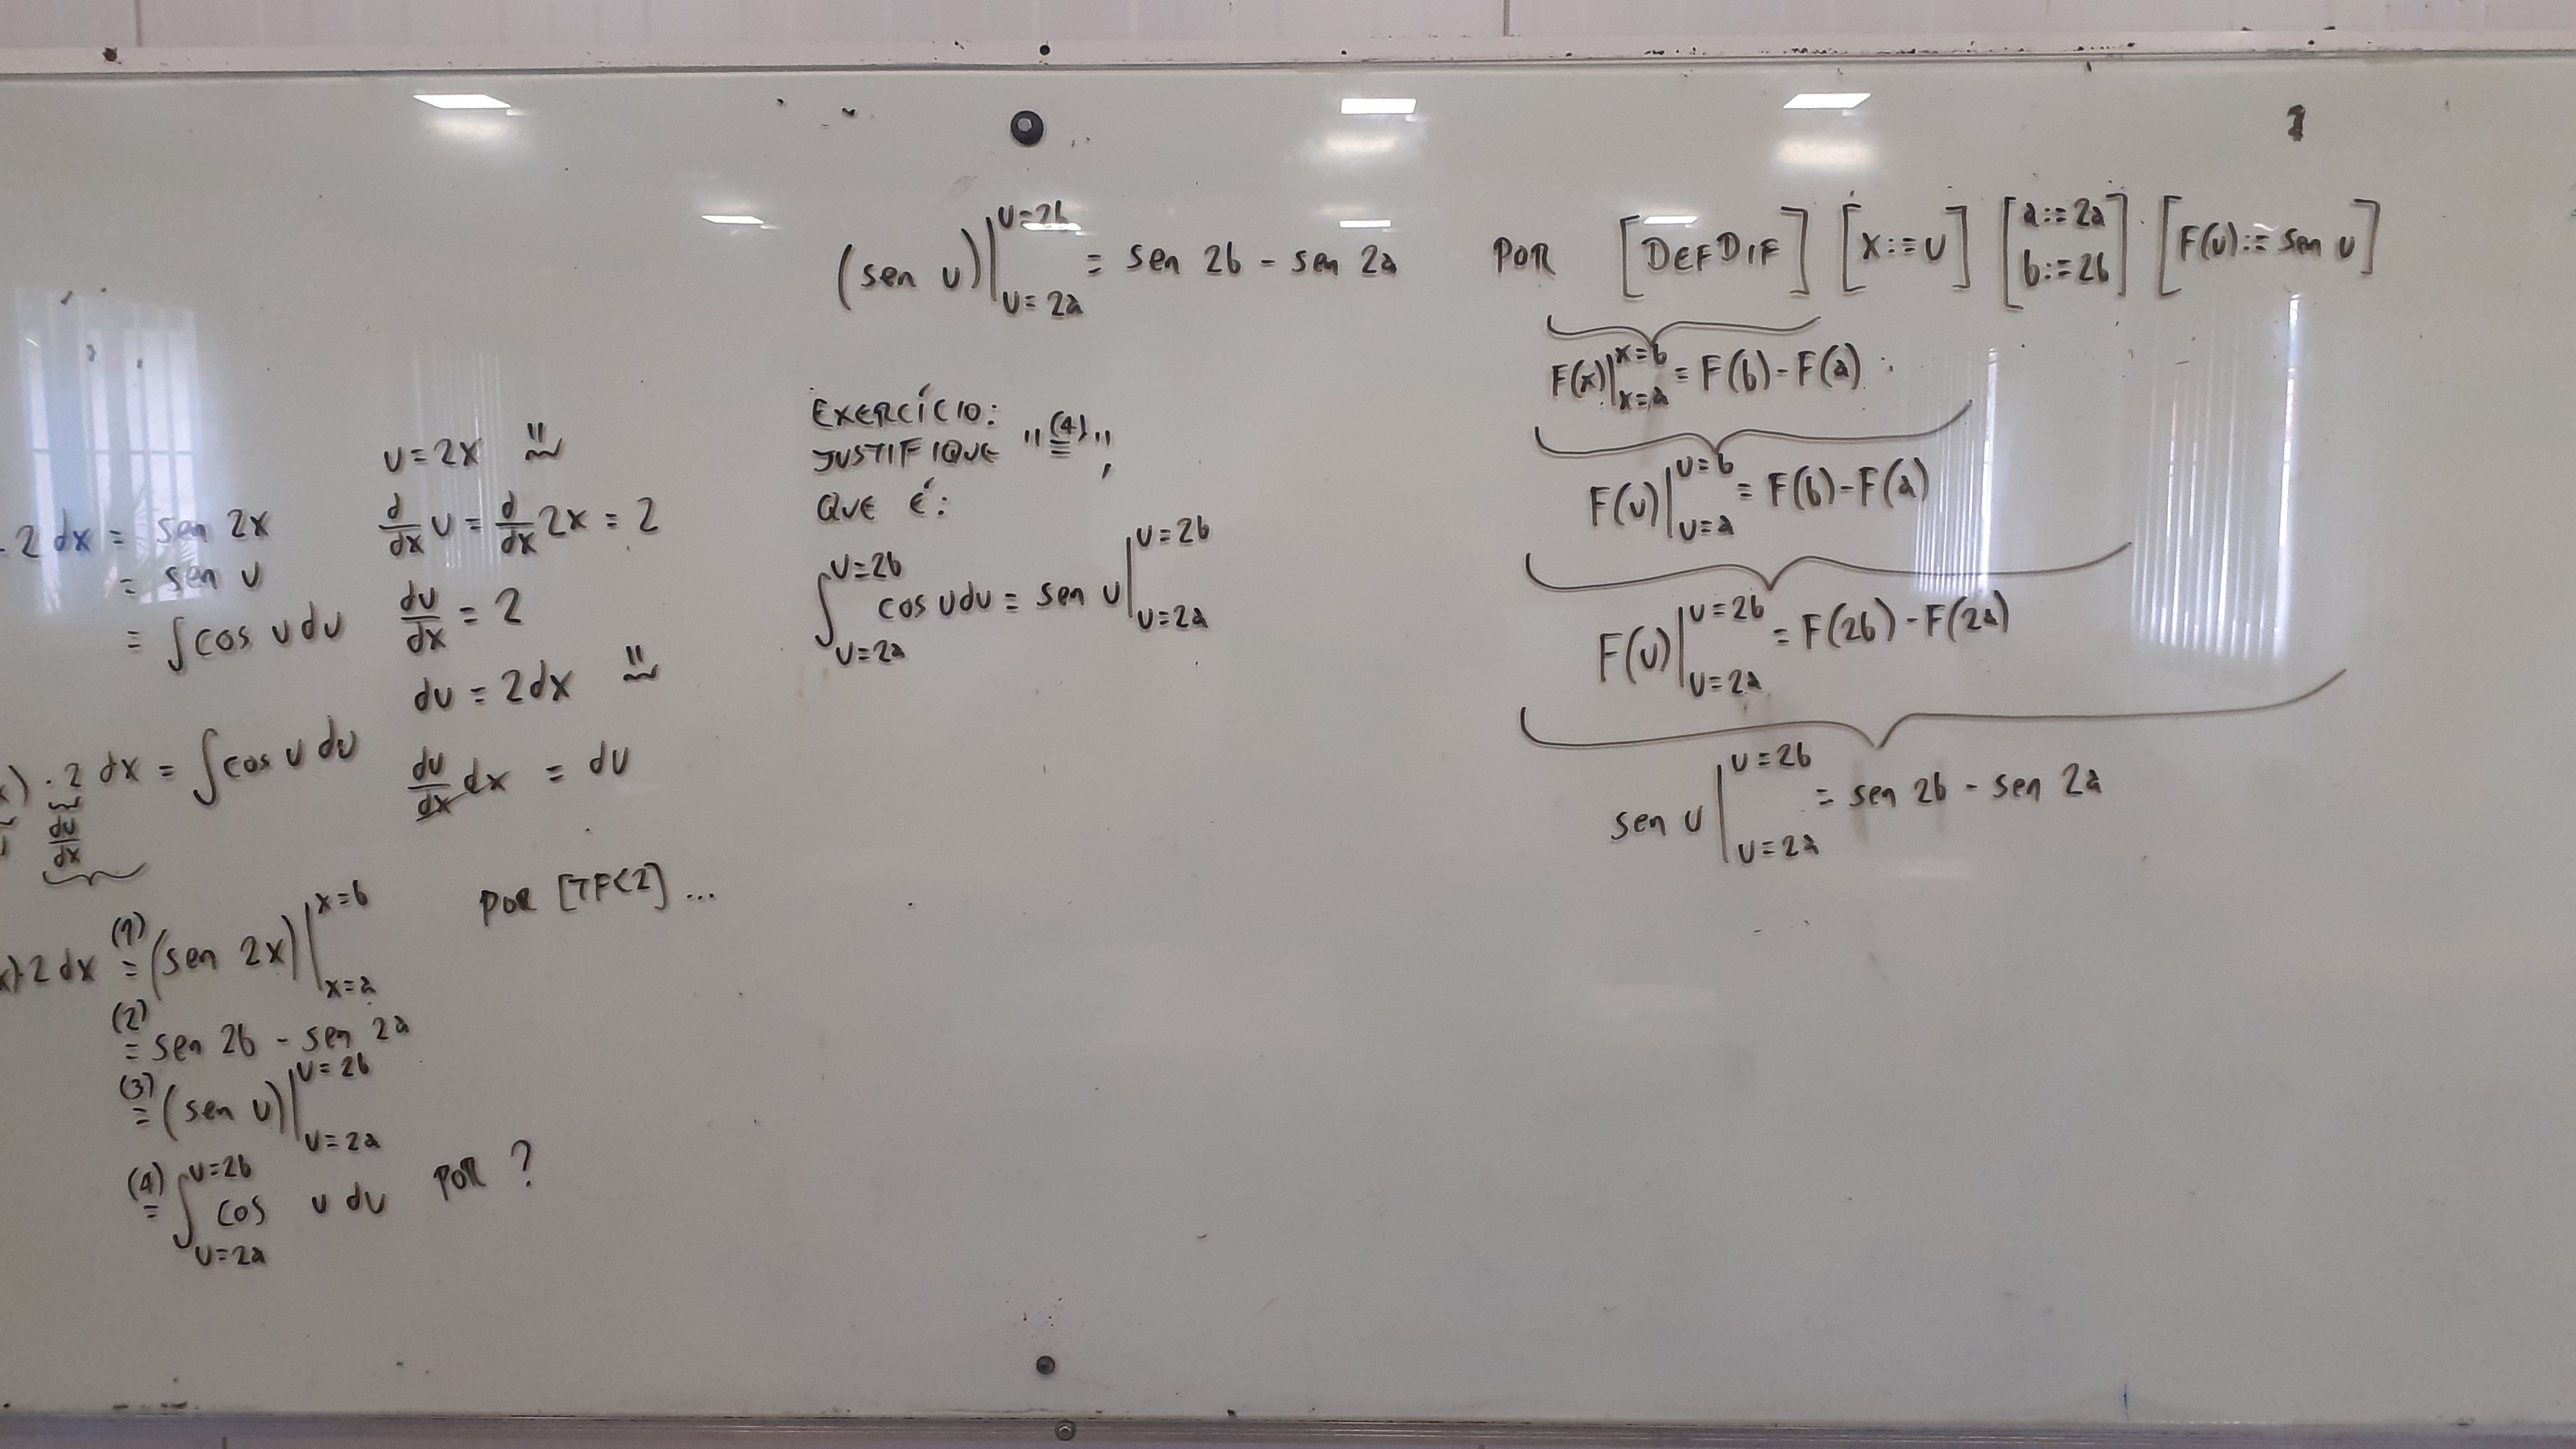 . 2 dx = sen 2x
= sen u
= ∫ cos u du
u = 2x "
d/dx u = d/dx 2x = 2
du/dx = 2
du = 2dx "
du/dx dx = du
x) . 2 dx = ∫ cos u du
du/dx
x)·2 dx (1)= (sen 2x)|_{x=a}^{x=b} POR [TFC2] ...
(2)= sen 2b - sen 2a
(3)= (sen u)|_{u=2a}^{u=2b}
(4)= ∫_{u=2a}^{u=2b} cos u du POR ?
(sen u)|_{u=2a}^{u=2b} = sen 2b - sen 2a POR [DEFDIF] [x:=u] [a:=2a b:=2b] [F(u):= sen u]
EXERCÍCIO:
JUSTIFIQUE "(4)=",
QUE É:
∫_{u=2a}^{u=2b} cos u du = sen u|_{u=2a}^{u=2b}
F(x)|_{x=a}^{x=b} = F(b) - F(a)
F(u)|_{u=a}^{u=b} = F(b) - F(a)
F(u)|_{u=2a}^{u=2b} = F(2b) - F(2a)
sen u|_{u=2a}^{u=2b} = sen 2b - sen 2a